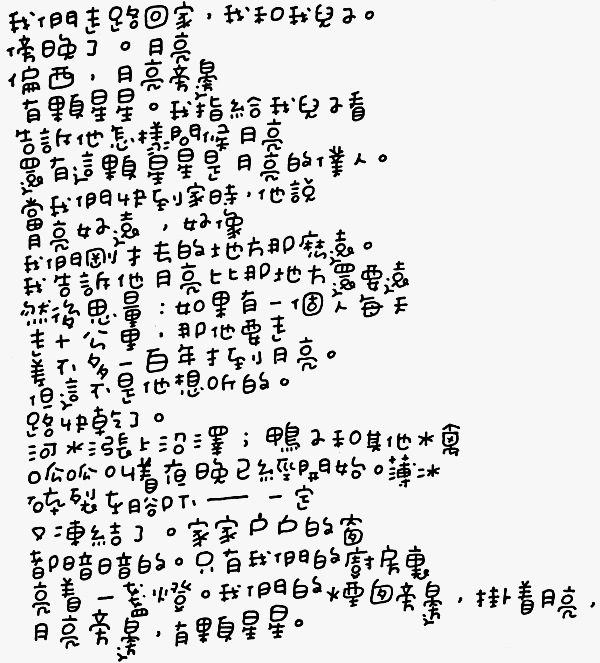 我們走路回家，我和我兒子。
傍晚了。月亮
偏西，月亮旁邊
有顆星星。我指給我兒子看
告訴他怎樣問候月亮
還有這顆星星是月亮的僕人。
當我們快到家時，他說
月亮好遠，好像
我們剛才去的地方那麼遠。
我告訴他月亮比那地方還要遠
然後思量：如果有一個人每天
走十公里，那他要走
差不多一百年才到月亮。
但這不是他想听的。
路快乾了。
河水漲上沼澤；鴨子和其他水禽
呱呱叫着夜晚已經開始。薄冰
破裂在腳下——一定
又凍結了。家家戶戶的窗
都暗暗的。只有我們的廚房裏
亮着一盞燈。我們的煙囪旁邊，掛着月亮，
月亮旁邊，有顆星星。